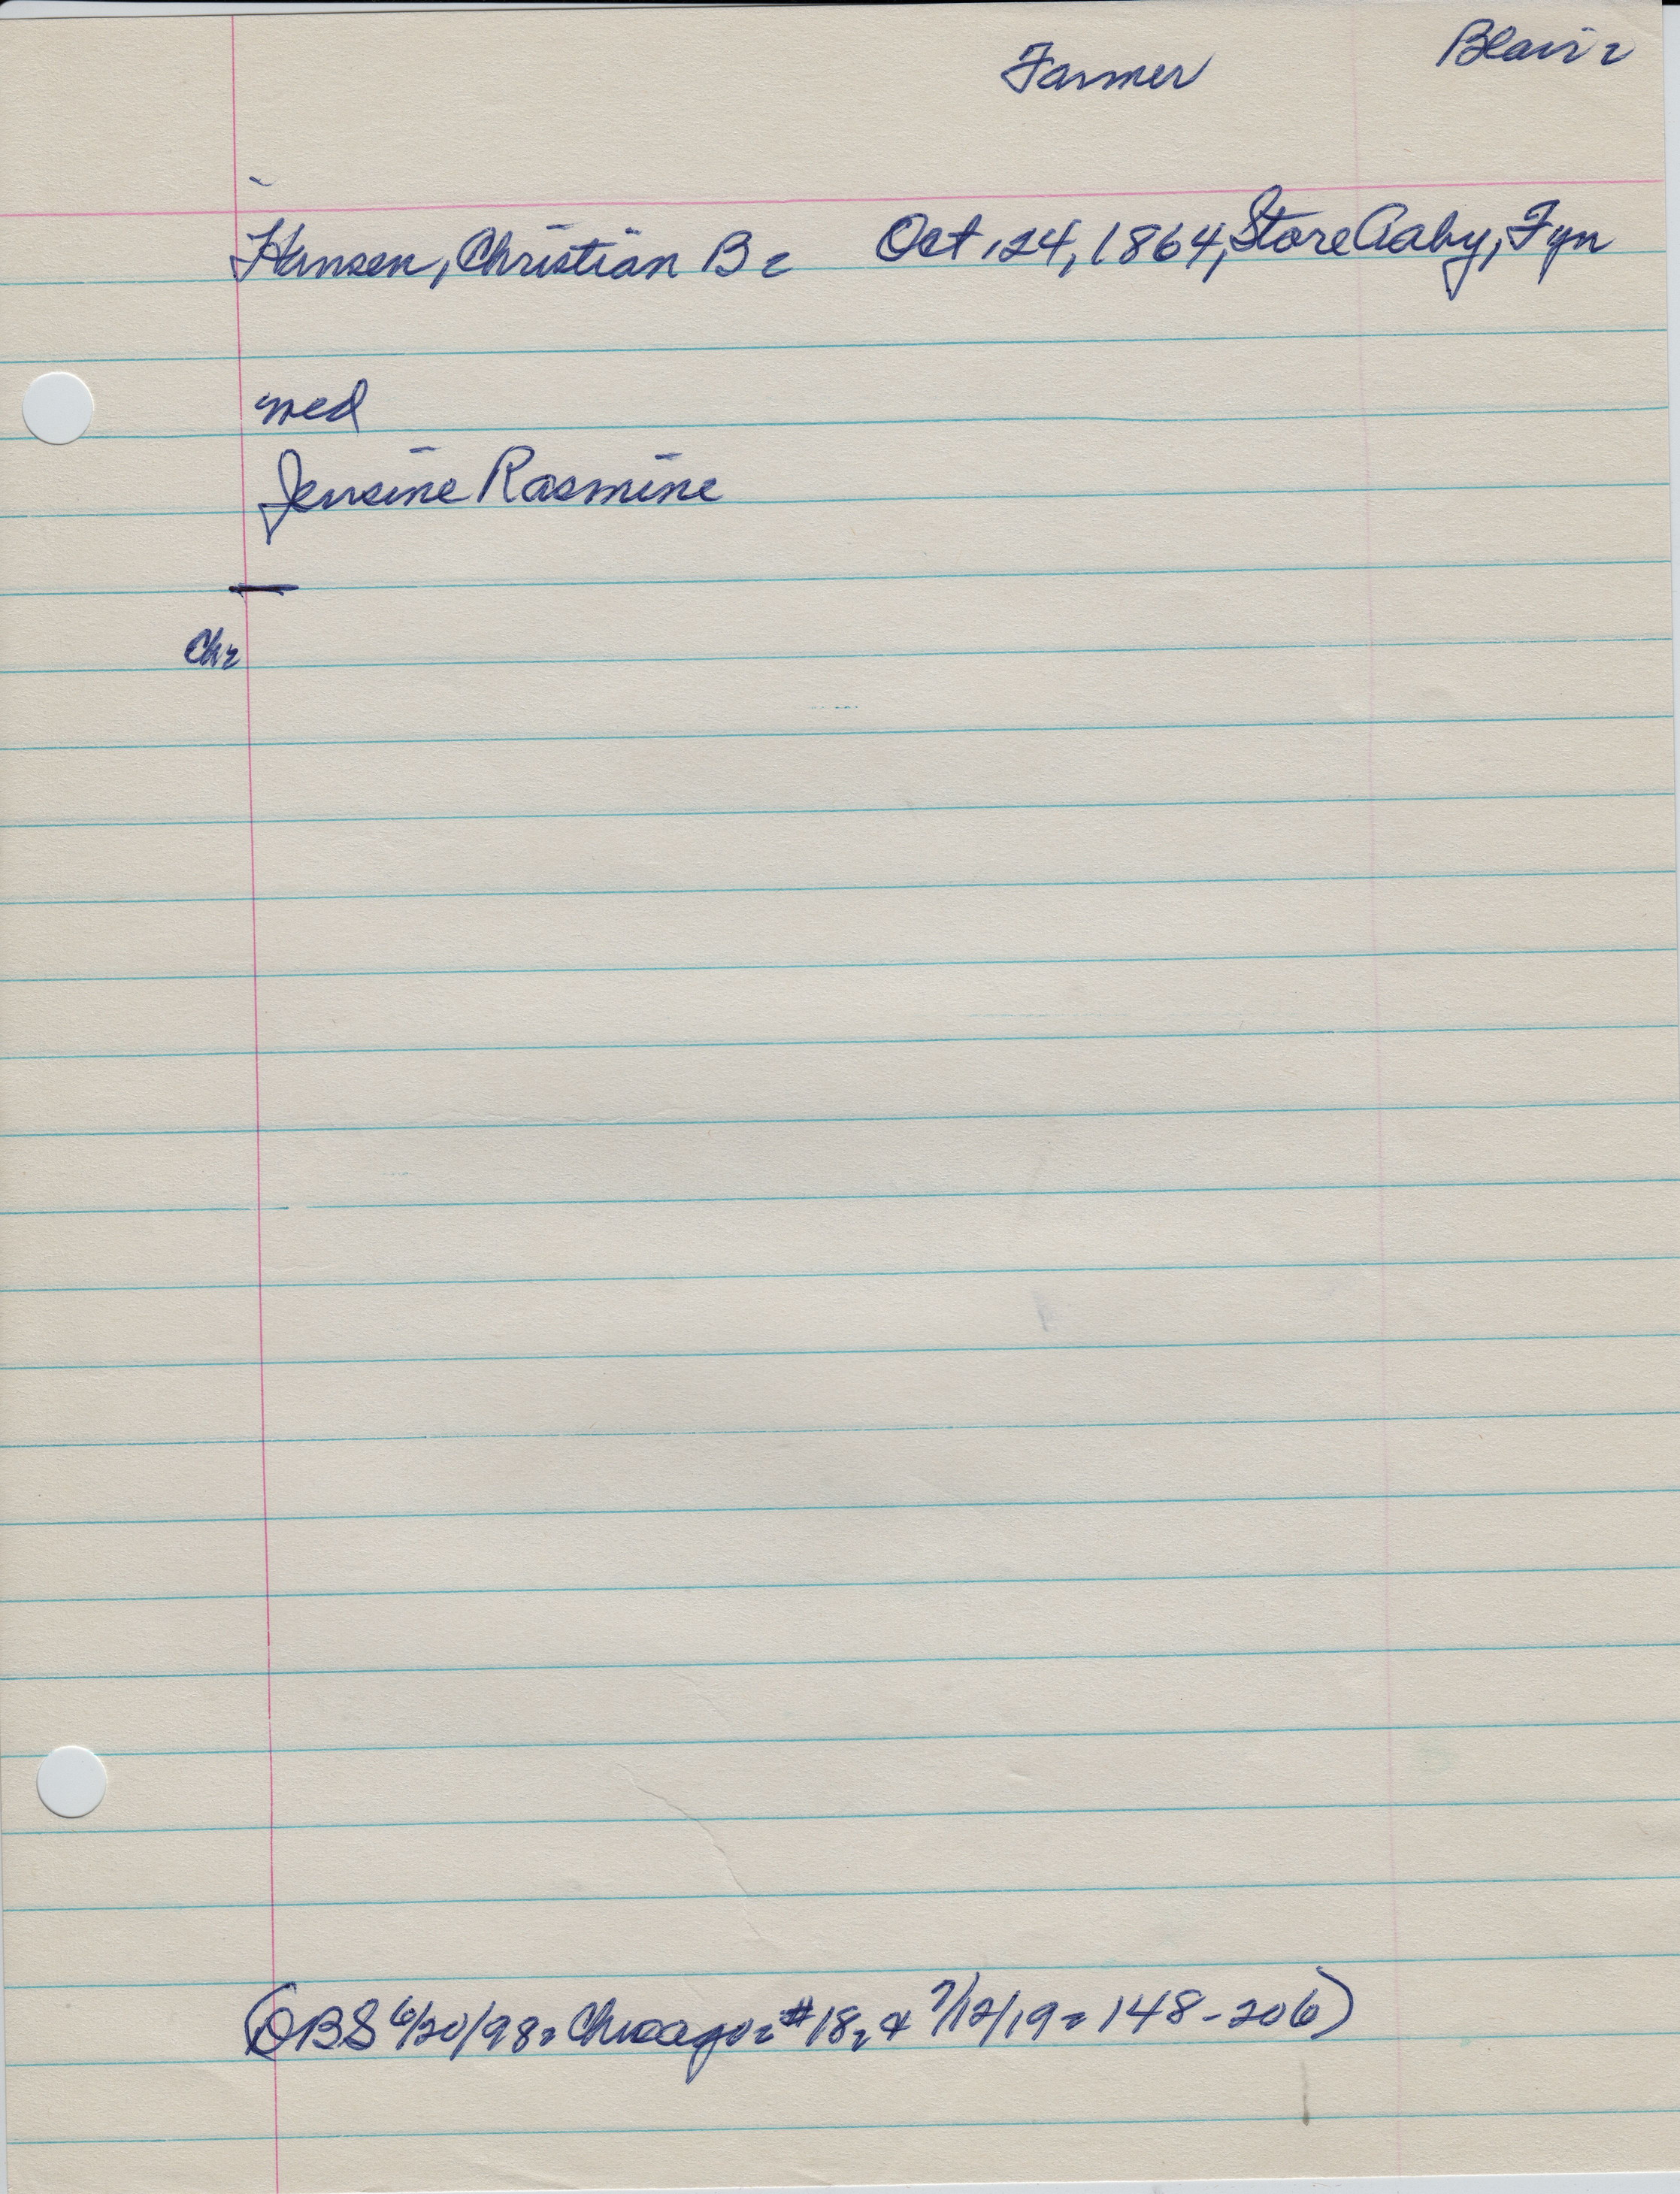 Farmer Blair.
Hansen, Christian B. Oct. 24, 1864, Store Aaby, Fyn
med
Jensine Rasmine
—
Chr
(DBS 6/20/98. Chicago. #18. & 7/12/19. 148-206)